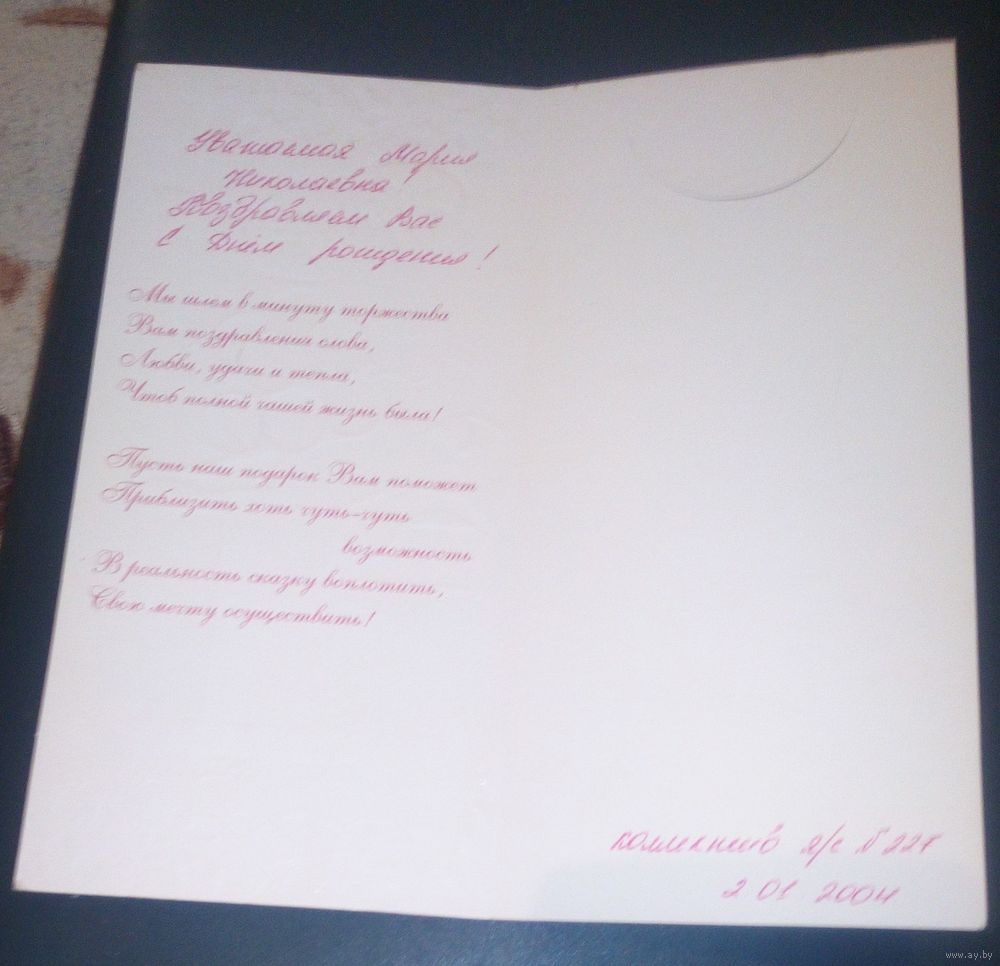 Уважаемая Мария
Николаевна!
Поздравляем Вас
с Днём рождения!
Мы шлем в минуту торжества
Вам поздравления слова,
Любви, удачи и тепла,
Чтоб полной чашей жизнь была!
Пусть наш подарок Вам поможет
Приблизить хоть чуть-чуть
возможность
В реальность сказку воплотить,
Свою мечту осуществить!
коллектив я/с № 227
2 01 2004
www.ay.by